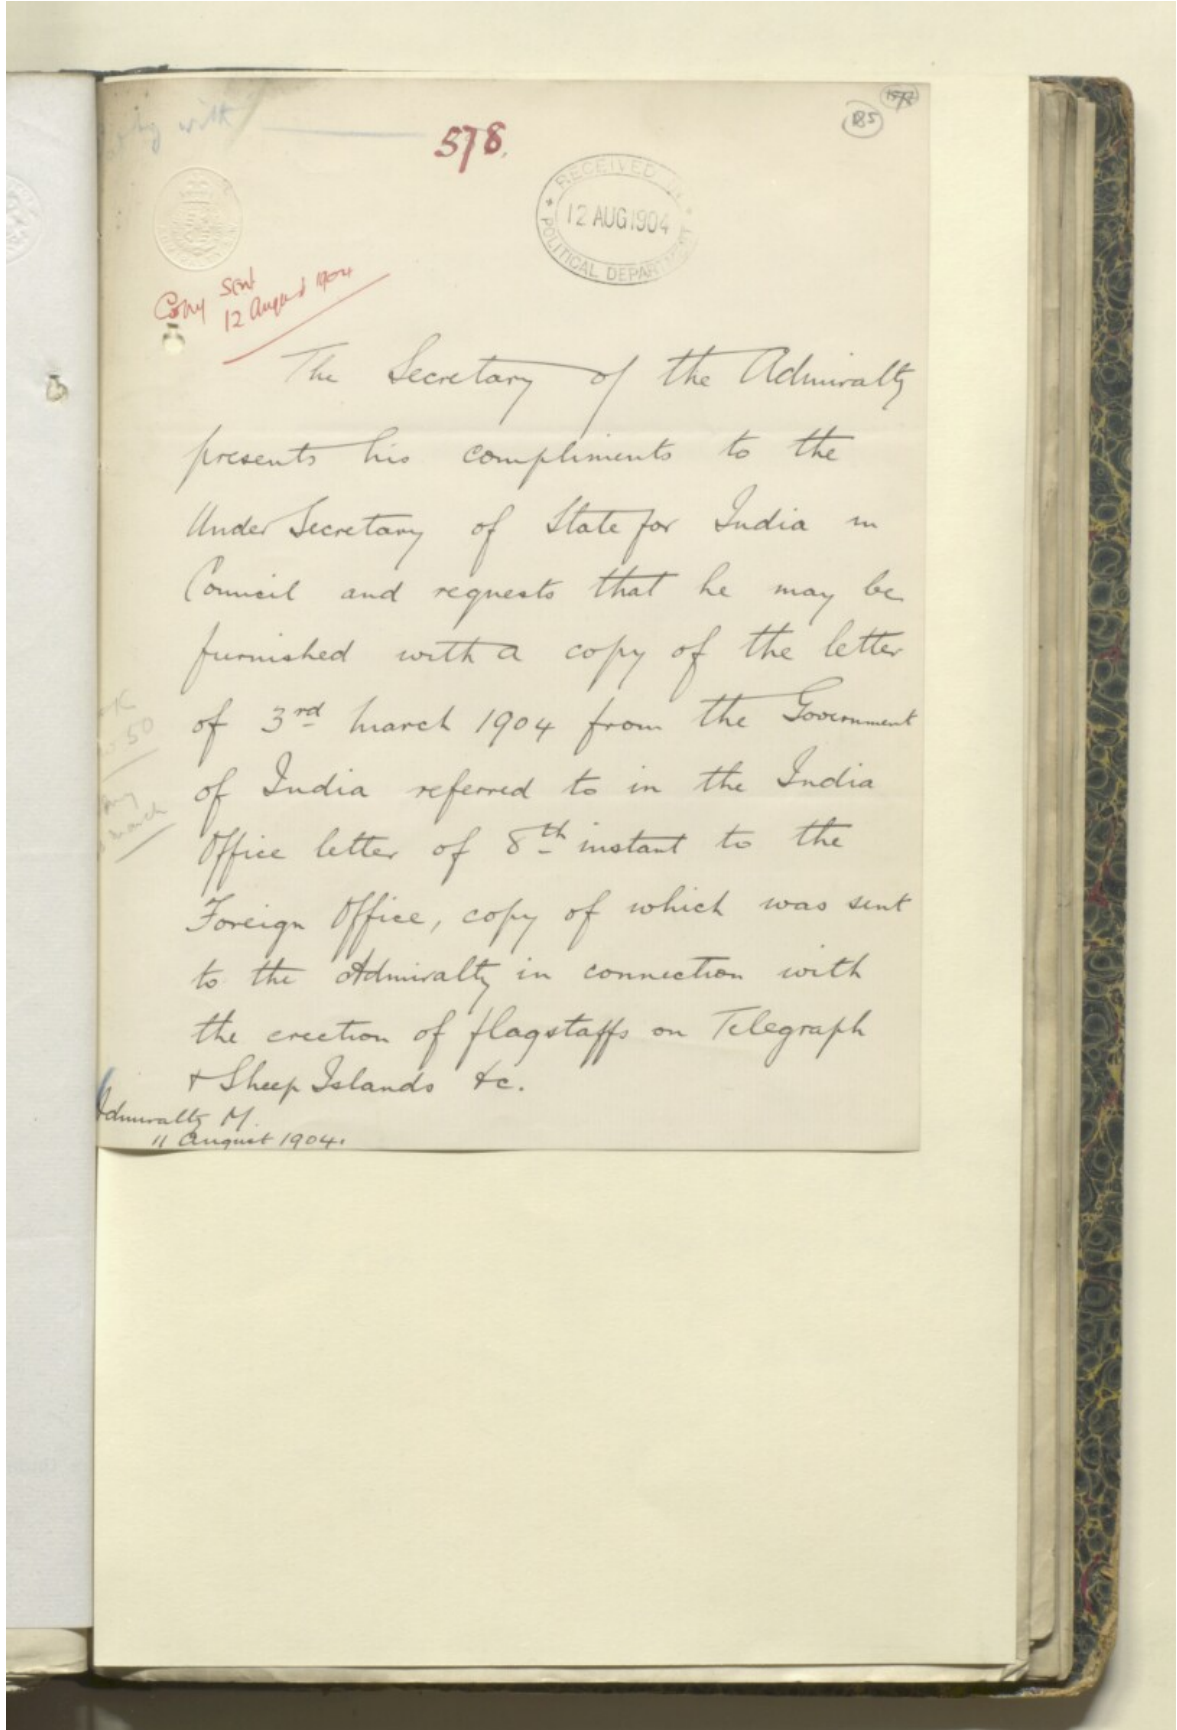 with
578.
185
RECEIVED IN
12 AUG 1904
POLITICAL DEPARTMENT
Copy sent
12 August 1904
The Secretary of the Admiralty
presents his compliments to the
Under Secretary of State for India in
Council and requests that he may be
furnished with a copy of the letter
of 3rd March 1904 from the Government
of India referred to in the India
Office letter of 8th instant to the
Foreign Office, copy of which was sent
to the Admiralty in connection with
the erection of flagstaffs on Telegraph
& Sheep Islands &c.
50
March
Admiralty M.
11 August 1904.